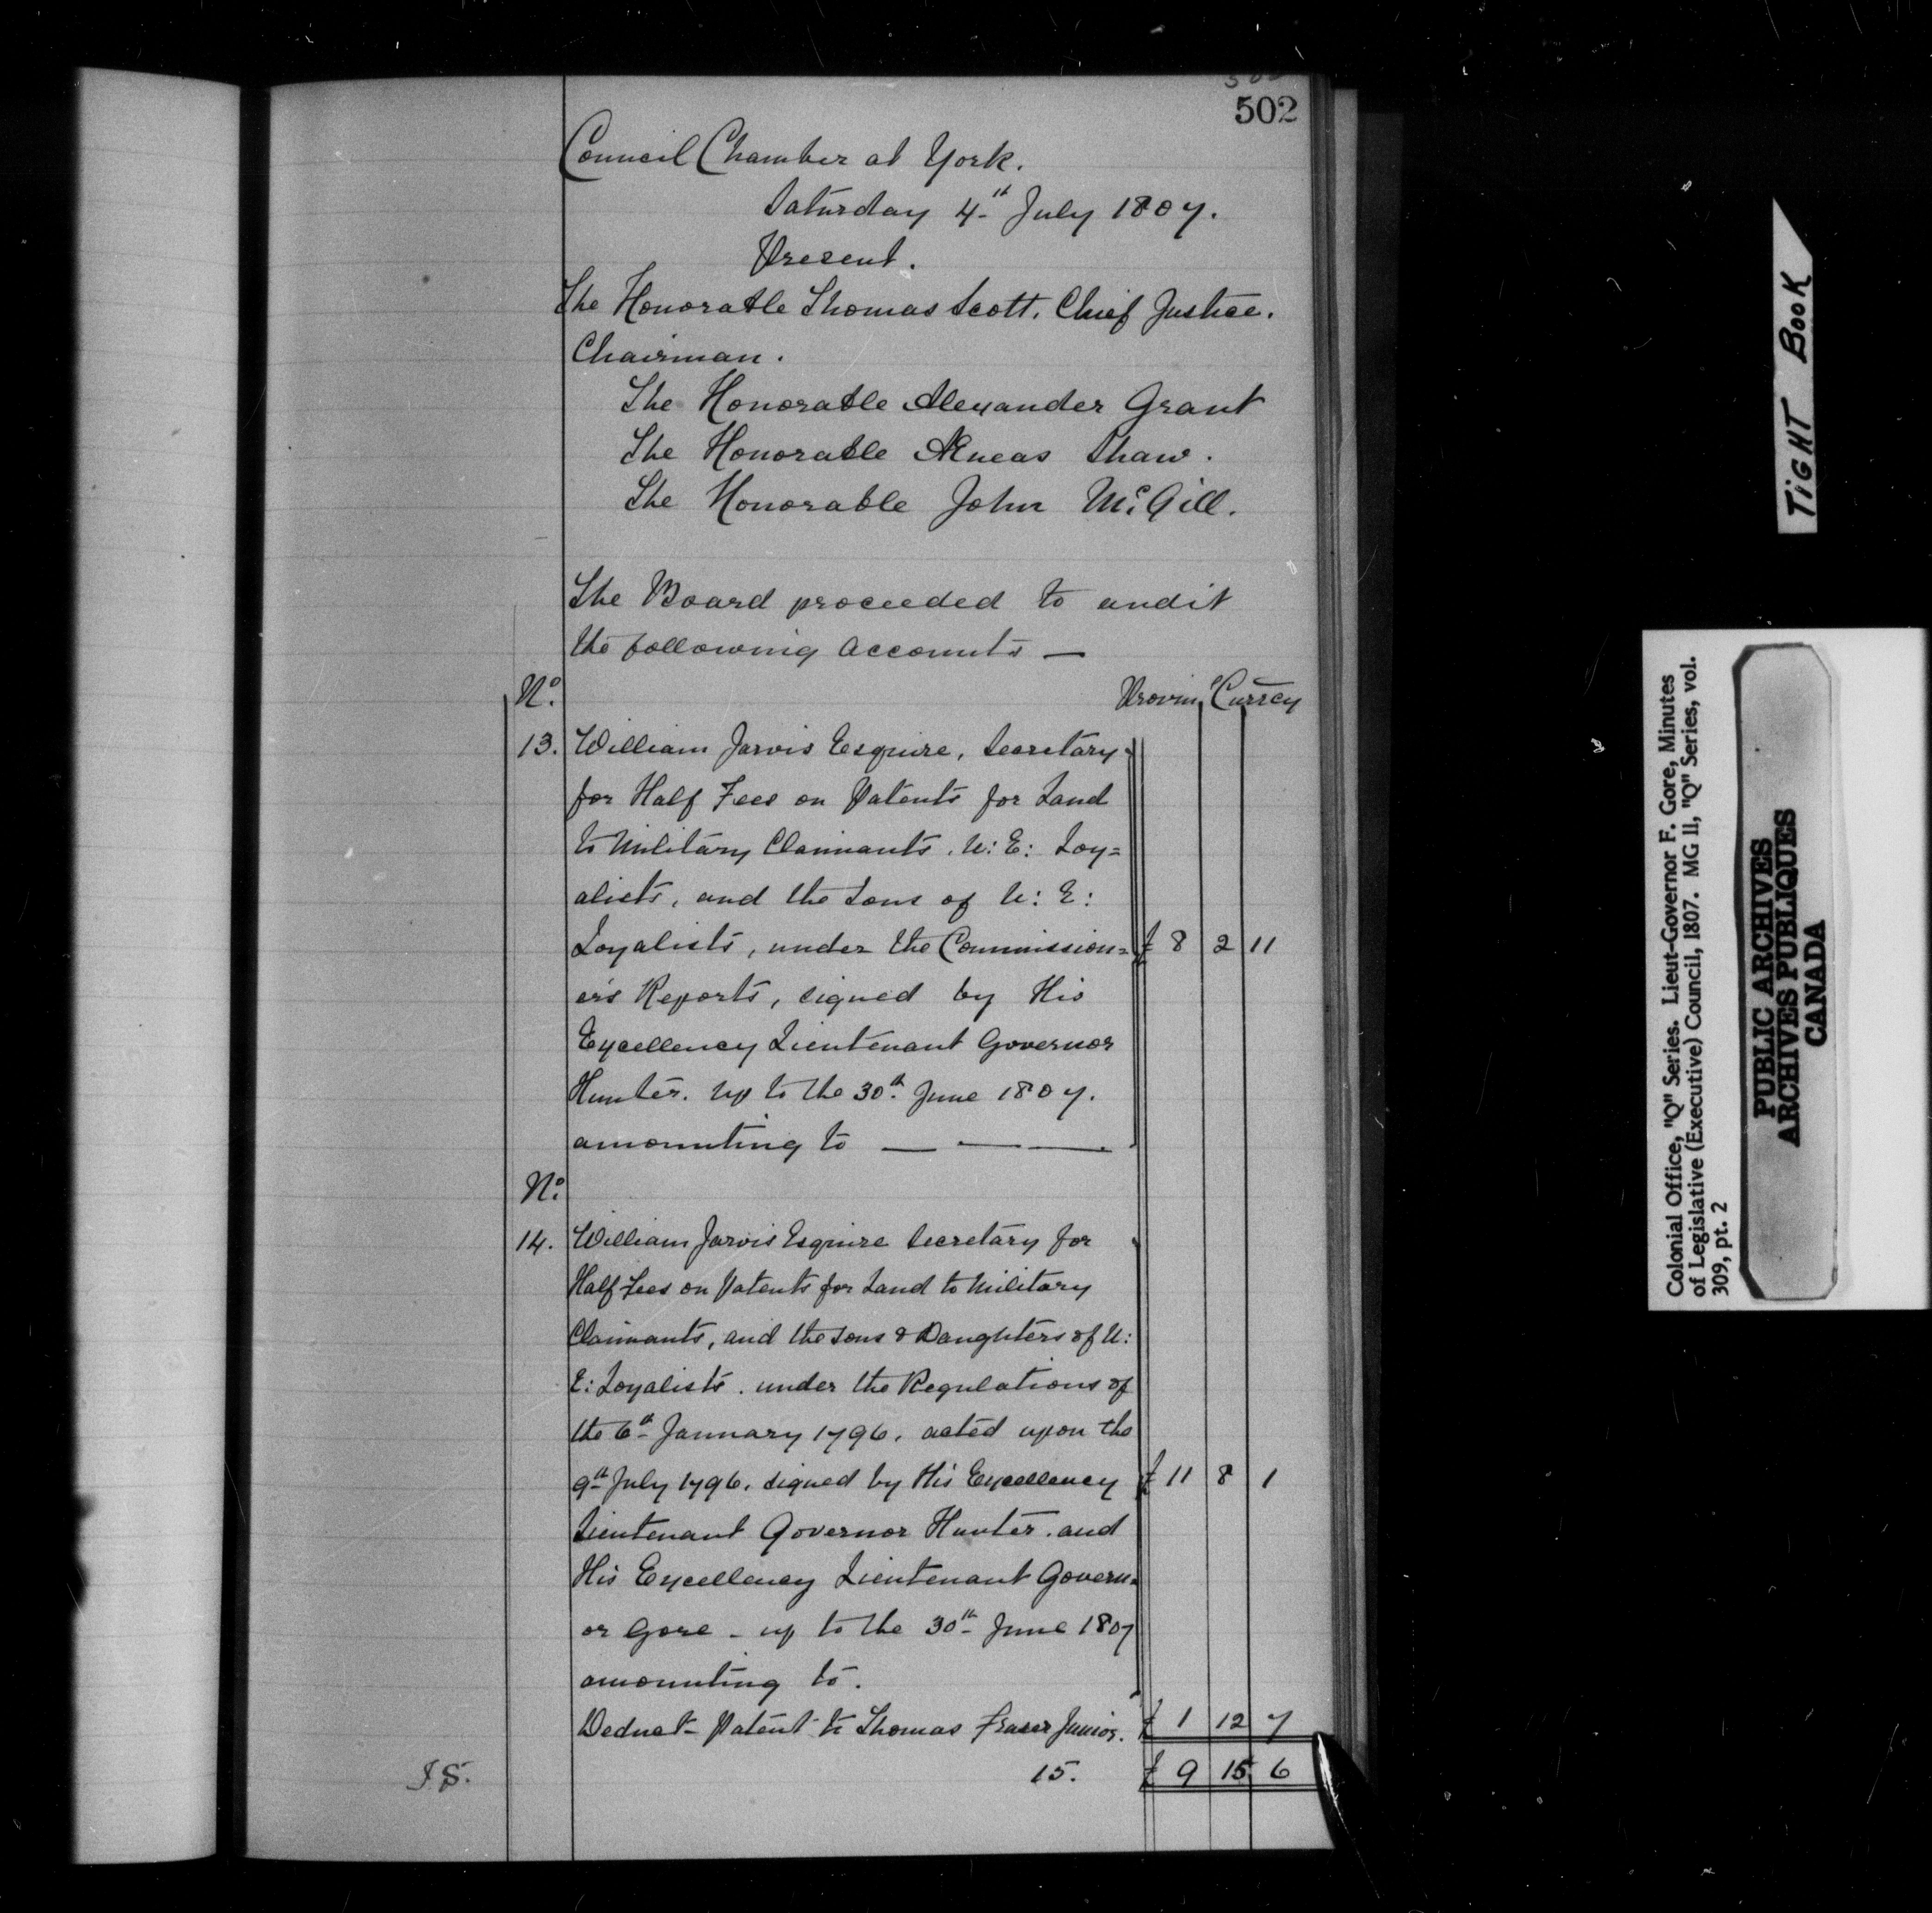 502
Council Chamber at York.
Saturday 4th July 1807.
Present.
The Honorable Thomas Scott, Chief Justice.
Chairman.
The Honorable Alexander Grant
The Honorable Æneas Shaw.
The Honorable John McGill.
The Board proceeded to audit
the following accounts —
No. Provinl Currcy
13. William Jarvis Esquire, Secretary
for Half Fees on Patents for Land
to Military Claimants, U: E: Loy=
alists, and the Sons of U: E:
Loyalists, under the Commission= £ 8 2 11
er's Reports, signed by His
Excellency Lieutenant Governor
Hunter. up to the 30th June 1807.
amounting to — — —
No.
14. William Jarvis Esquire Secretary for
Half Fees on Patents for Land to Military
Claimants, and the Sons & Daughters of U:
E: Loyalists. under the Regulations of
the 6th January 1796, acted upon the
9th July 1796. signed by His Excellency £ 11 8 1
Lieutenant Governor Hunter. and
His Excellency Lieutenant Govern=
or Gore - up to the 30th June 1807
amounting to.
Deduct - Patent to Thomas Fraser Junior. £ 1 12 7
15. £ 9 15 6
TIGHT BOOK
Colonial Office, "Q" Series. Lieut-Governor F. Gore, Minutes
of Legislative (Executive) Council, 1807. MG 11, "Q" Series, vol.
309, pt. 2
PUBLIC ARCHIVES
ARCHIVES PUBLIQUES
CANADA